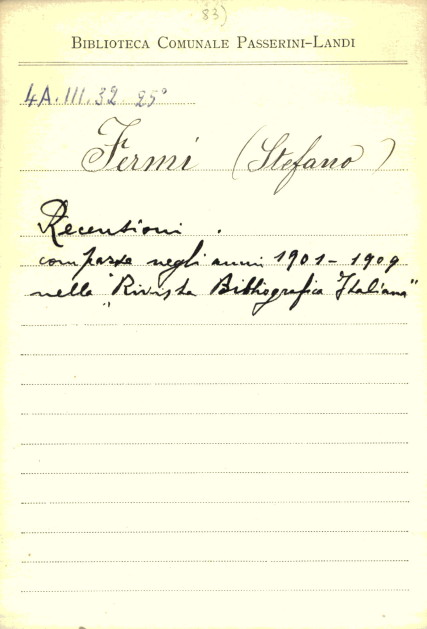 83)
BIBLIOTECA COMUNALE PASSERINI-LANDI
4A.III.32 25°
Fermi (Stefano)
Recensioni.
comparse negli anni 1901-1909
nella "Rivista Bibliografica Italiana"